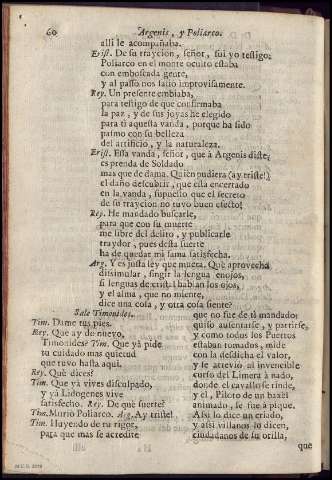 60 Argenis, y Poliarco.
alli le acompañaba.
Erist. De su traycion, señor, fui yo testigo:
Poliarco en el monte oculto estaba
con emboscada gente,
y al passo nos salió improvisamente.
Rey. Un presente embiaba,
para testigo de que confirmaba
la paz, y de sus joyas he elegido
para ti aquesta vanda, porque ha sido
pasmo con su belleza
del artificio, y la naturaleza.
Erist. Essa vanda, señor, que à Argenis diste,
es prenda de Soldado
mas que de dama. Quien pudiera (ay triste!)
el daño descubrir, que està encertado
en la vanda, supuesto que el secreto
de su traycion no tuvo buen efecto!
Rey. He mandado buscarle,
para que con su muerte
me libre del delito, y publicarle
traydor, pues desta suerte
ha de quedar mi fama satisfecha.
Arg. Y es justa ley que muera. Què aprovecha
dissimular, fingir la lengua enojos,
si lenguas de cristal hablan los ojos,
y el alma, que no miente,
dice una cosa, y otra cosa siente?
Sale Timonides.
Tim. Dame tus pies.
Rey. Que ay de nuevo,
Timonides? Tim. Que yà pide
tu cuidado mas quietud
que tuvo hasta aqui.
Rey. Què dices?
Tim. Que yà vives disculpado,
y yà Lidogenes vive
satisfecho. Rey. De què suerte?
Tim. Murió Poliarco. Arg. Ay triste!
Tim. Huyendo de tu rigor,
para que mas se acredite
que no fue de ti mandado;
quiso ausentarse, y partirse,
y como todos los Puertos
estaban tomados, mide
con la desdicha el valor,
y se atreviò al invencible
curso del Limera à nado,
donde el cavallo se rinde,
y el, Piloto de un baxèl
animado, se fue à pique.
Assi lo dice un criado,
y assi villanos lo dicen,
ciudadanos de su orilla,
què